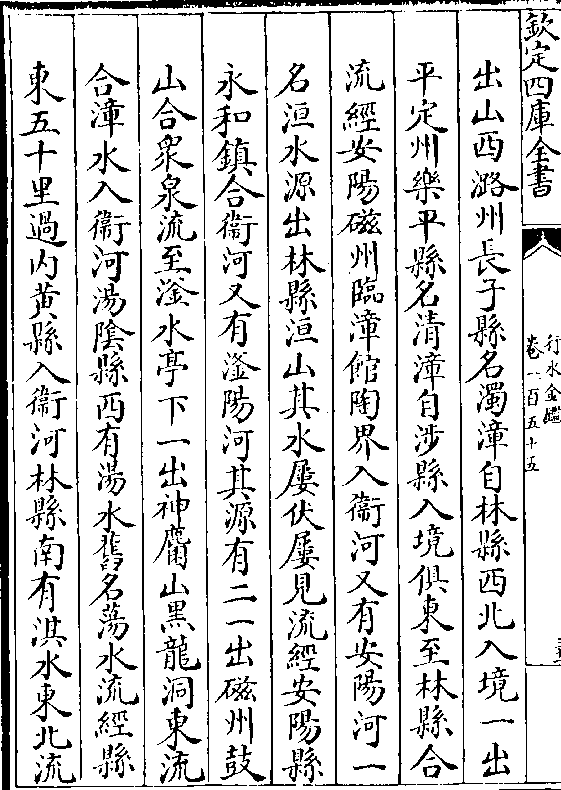 欽定四庫全書
行水金鑑
卷一百五十五
出山西潞州長子縣名濁漳自林縣西北入境一出
平定州樂平縣名清漳自涉縣入境俱東至林縣合
流經安陽磁州臨漳館陶界入衞河又有安陽河一
名洹水源出林縣洹山其水屢伏屢見流經安陽縣
永和鎮合衞河又有滏陽河其源有二一出磁州鼓
山合衆泉流至滏水亭下一出神麕山黑龍洞東流
合漳水入衞河湯陰縣西有湯水舊名蕩水流經縣
東五十里過内黄縣入衞河林縣南有淇水東北流